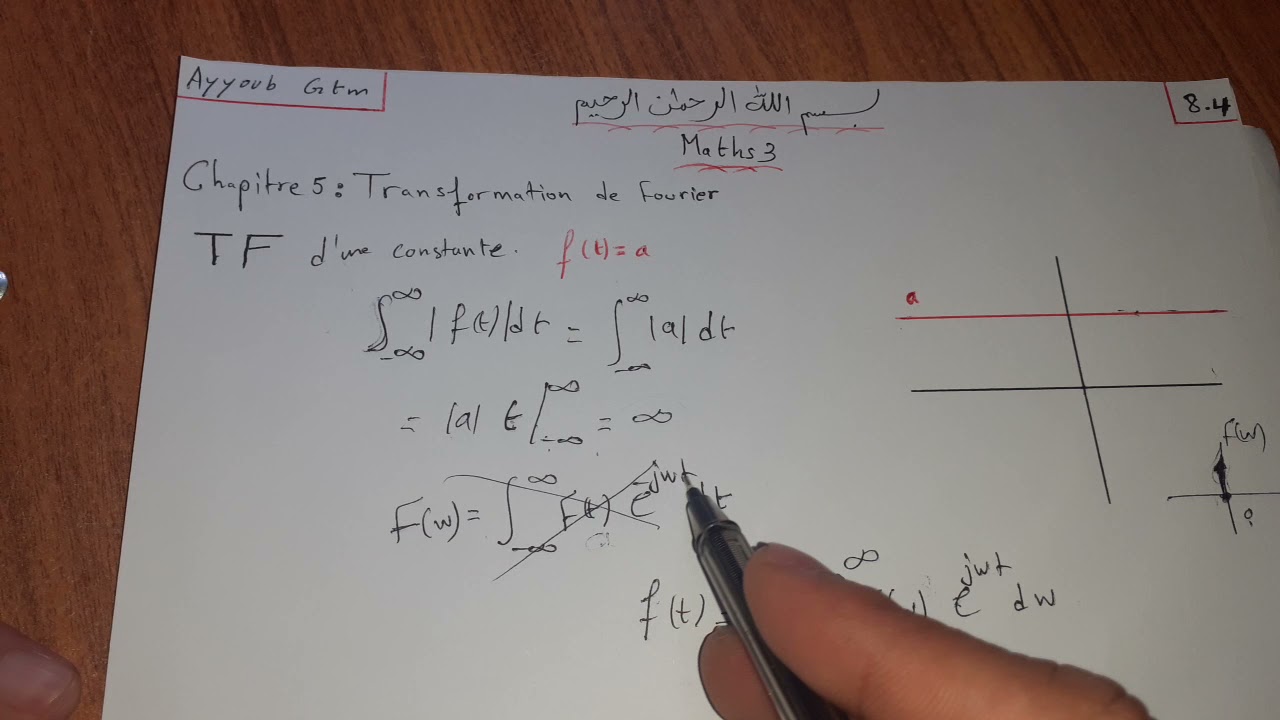 Ayyoub Gtm
بسم الله الرحمٰن الرحيم
8.4
Maths 3
Chapitre 5: Transformation de Fourier
TF d'une constante. f(t) = a
∫_{-∞}^{∞} |f(t)| dt = ∫_{-∞}^{∞} |a| dt
a
= |a| t |_{-∞}^{∞} = ∞
F(w)
F(w) = ∫_{-∞}^{∞} f(t) e^{-jwt} dt
f(t) = ∞ e^{jwt} dw